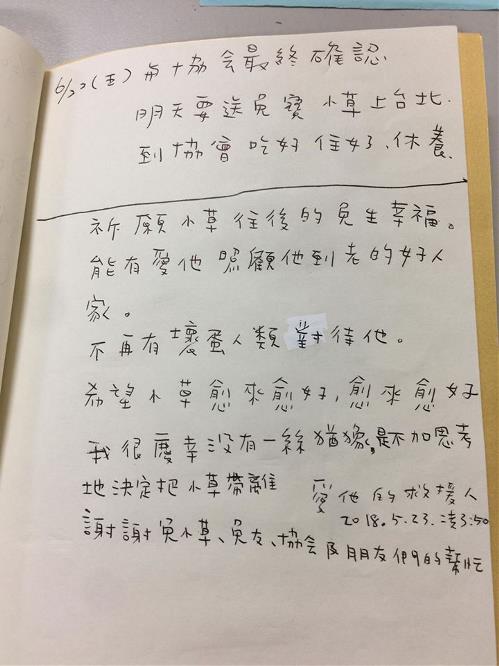 6/22(五)與協会最終確認
明天要送兔寶 小草上台北.
到協會吃好住好、休養.
祈願小草往後的兔生幸福。
能有愛他照顧他到老的好人
家。
不再有壞蛋人類對待他。
希望小草愈來愈好,愈來愈好
我很慶幸沒有一絲猶豫,是不加思考
地決定把小草帶離
愛他的救援人
2018.5.23.凌3:50
謝謝兔小草、兔友、協会及朋友們的幫忙